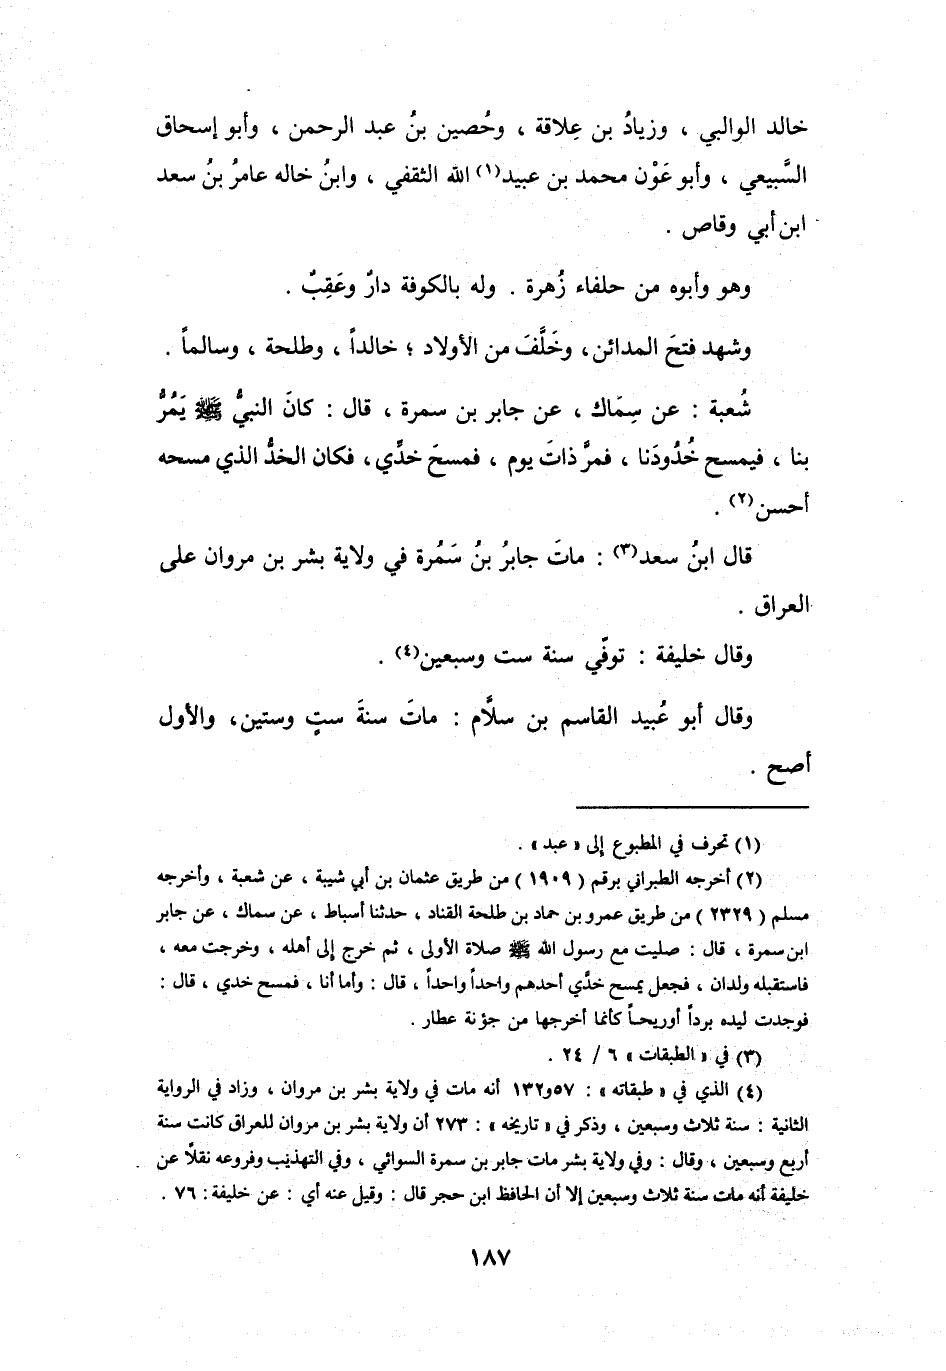 خالد الوالبي ، وزيادُ بن عِلاقة ، وحُصين بنُ عبد الرحمن ، وأبو إسحاق
السَّبيعي ، وأبو عَوْن محمد بن عبيد(١) الله الثقفي ، وابنُ خاله عامرُ بنُ سعد
ابن أبي وقاص .
وهو وأبوه من حلفاء زُهرة . وله بالكوفة دارٌ وعَقِبٌ .
وشهد فتحَ المدائن، وخَلَّفَ من الأولاد ؛ خالداً ، وطلحة ، وسالماً .
شُعبة : عن سِمَاك ، عن جابر بن سمرة ، قال : كانَ النبيُّ ﷺ يَمُرُّ
بنا ، فيمسح خُدُودَنا ، فمرَّ ذاتَ يوم ، فمسحَ خدِّي، فكان الخدُّ الذي مسحه
أحسن(٢) .
قال ابنُ سعد(٣) : ماتَ جابرُ بنُ سَمُرة في ولاية بشر بن مروان على
العراق .
وقال خليفة : توفّي سنة ست وسبعين(٤) .
وقال أبو عُبيد القاسم بن سلَّام : ماتَ سنةَ ستٍ وستين، والأول
أصح .
(١) تحرف في المطبوع إلى « عبد » .
(٢) أخرجه الطبراني برقم ( ١٩٠٩ ) من طريق عثمان بن أبي شيبة ، عن شعبة ، وأخرجه
مسلم ( ٢٣٢٩ ) من طريق عمرو بن حماد بن طلحة القناد ، حدثنا أسباط ، عن سماك ، عن جابر
ابن سمرة ، قال : صليت مع رسول الله ﷺ صلاة الأولى ، ثم خرج إلى أهله ، وخرجت معه ،
فاستقبله ولدان ، فجعل يمسح خدَّي أحدهم واحداً واحداً ، قال : وأما أنا ، فمسح خدي ، قال :
فوجدت ليده برداً أوريحاً كأنما أخرجها من جؤنة عطار .
(٣) في « الطبقات » ٦ / ٢٤ .
(٤) الذي في « طبقاته » : ٥٧و١٣٢ أنه مات في ولاية بشر بن مروان ، وزاد في الرواية
الثانية : سنة ثلاث وسبعين ، وذكر في « تاريخه » : ٢٧٣ أن ولاية بشر بن مروان للعراق كانت سنة
أربع وسبعين ، وقال : وفي ولاية بشر مات جابر بن سمرة السوائي ، وفي التهذيب وفروعه نقلاً عن
خليفة أنه مات سنة ثلاث وسبعين إلا أن الحافظ ابن حجر قال : وقيل عنه أي : عن خليفة : ٧٦ .
١٨٧